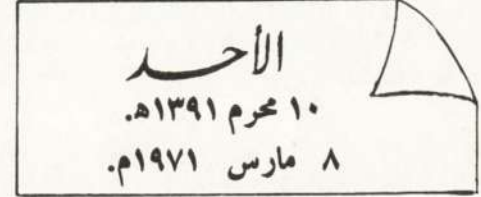 الأحد
١٠ محرم ١٣٩١ه.
٨ مارس ١٩٧١م.